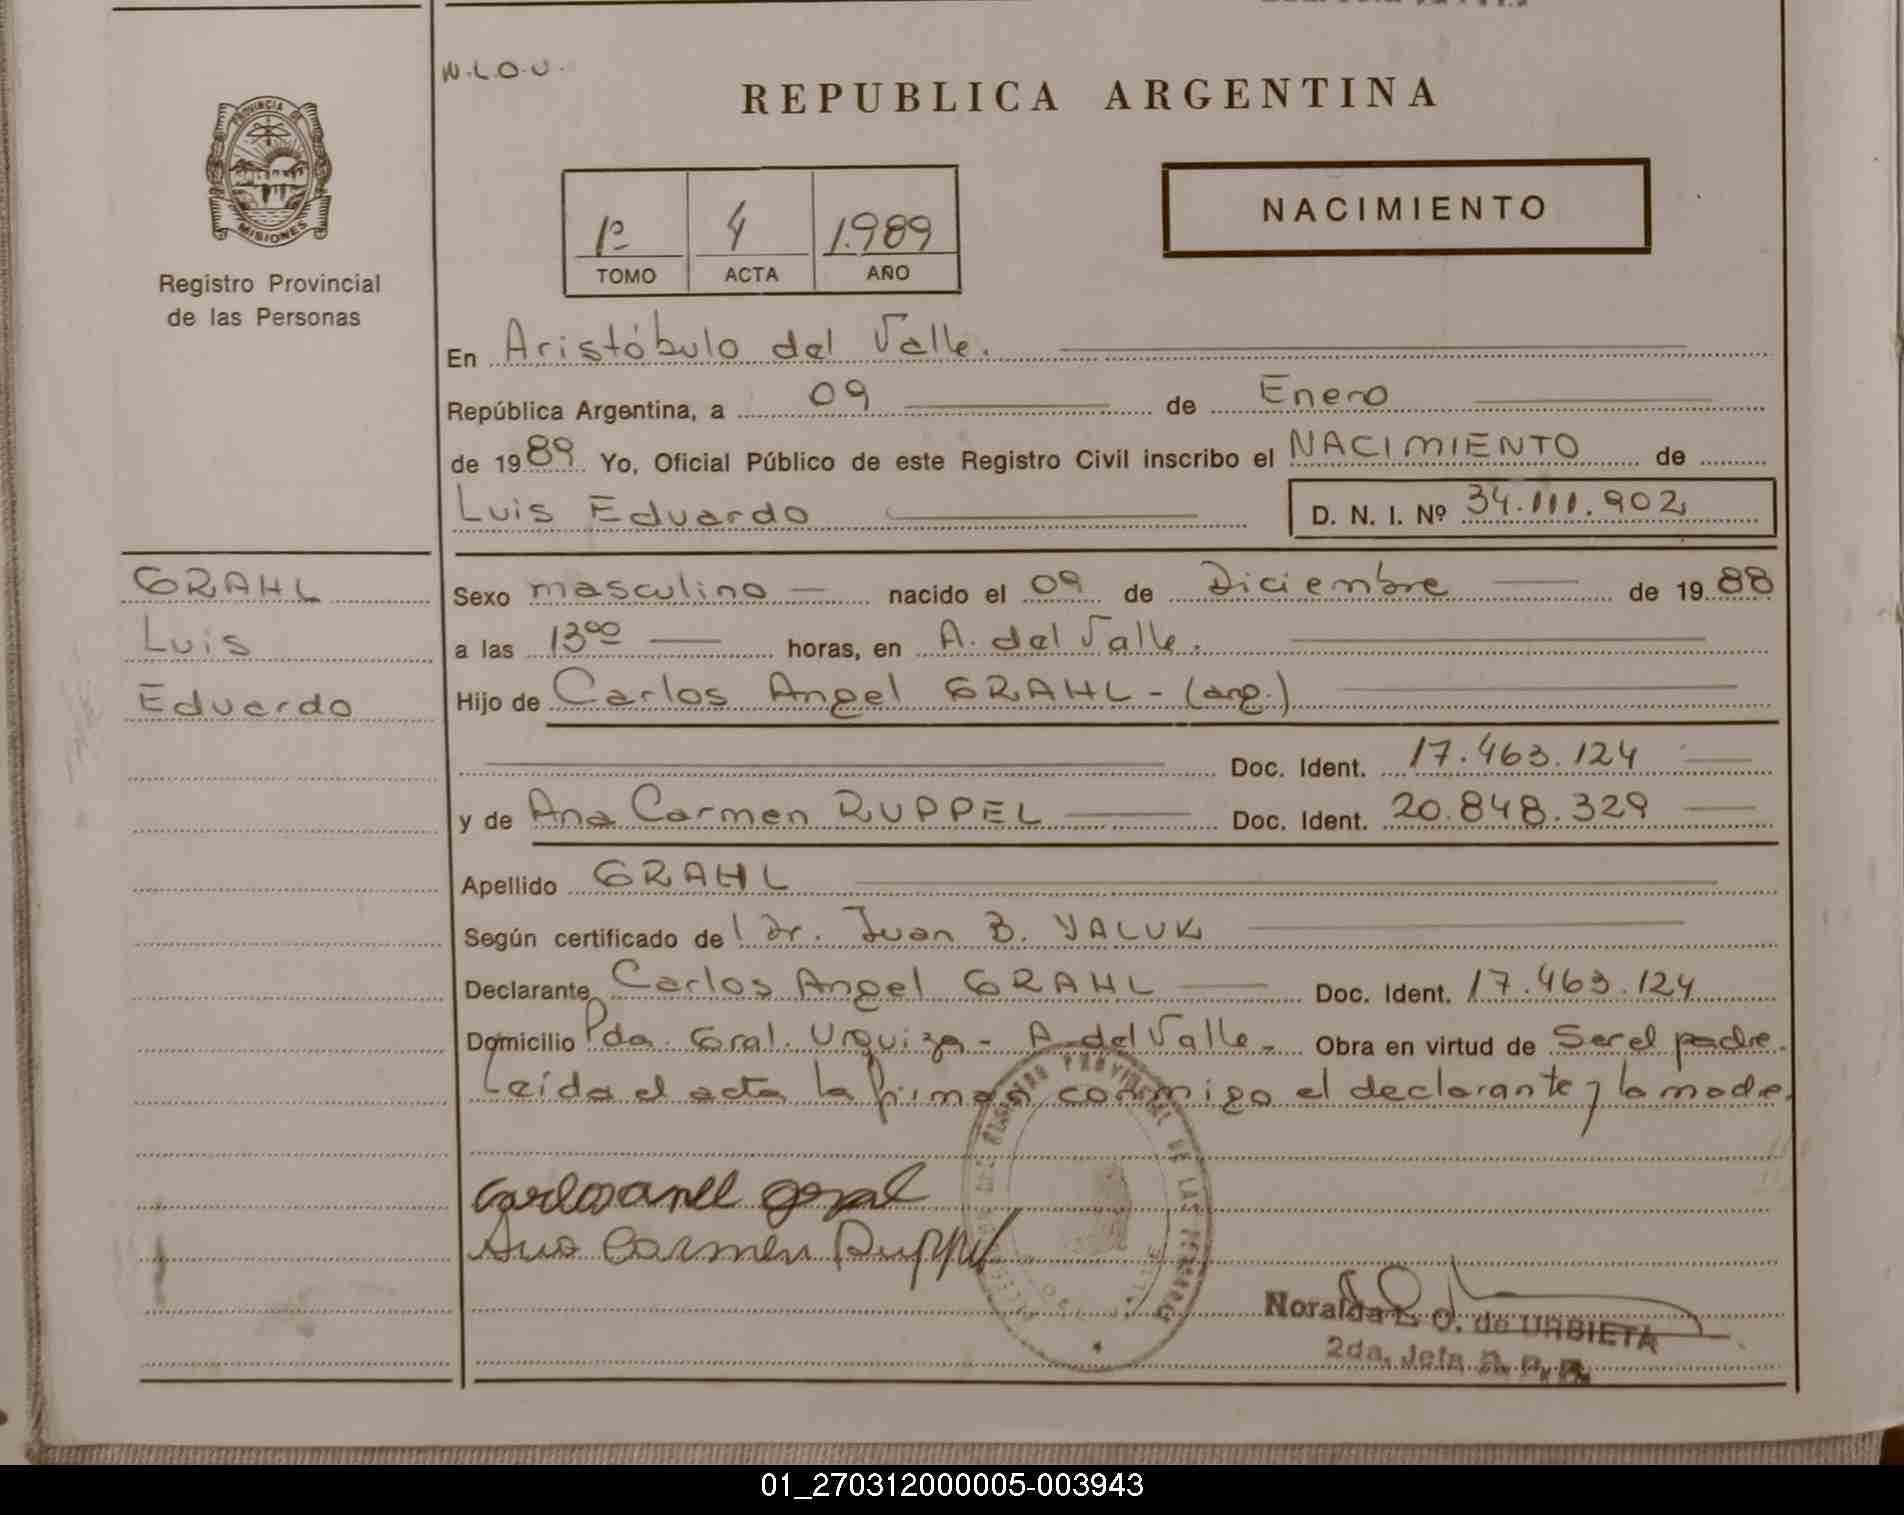 N.L.O.U.
REPUBLICA ARGENTINA
PROVINCIA DE
MISIONES
Registro Provincial
de las Personas
1º 4 1.989
TOMO ACTA AÑO
NACIMIENTO
En Aristóbulo del Valle.
República Argentina, a 09 de Enero
de 1989 Yo, Oficial Público de este Registro Civil inscribo el NACIMIENTO de
Luis Eduardo D. N. I. Nº 34.111.902
GRAHL
Luis
Eduardo
Sexo masculino nacido el 09 de Diciembre de 1988
a las 13ºº horas, en A. del Valle.
Hijo de Carlos Angel GRAHL - (arg.)
Doc. Ident. 17.463.124
y de Ana Carmen RUPPEL Doc. Ident. 20.848.329
Apellido GRAHL
Según certificado de l Dr. Juan B. YALUK
Declarante Carlos Angel GRAHL Doc. Ident. 17.463.124
Domicilio Pda. Gral. Urquiza - A. del Valle - Obra en virtud de Ser el padre.
Leída el acta la firman conmigo el declarante y la madre.
Ana Carmen Ruppel
Noralda L. O. de URBIETA
2da. Jefa R. P. P.
01_270312000005-003943